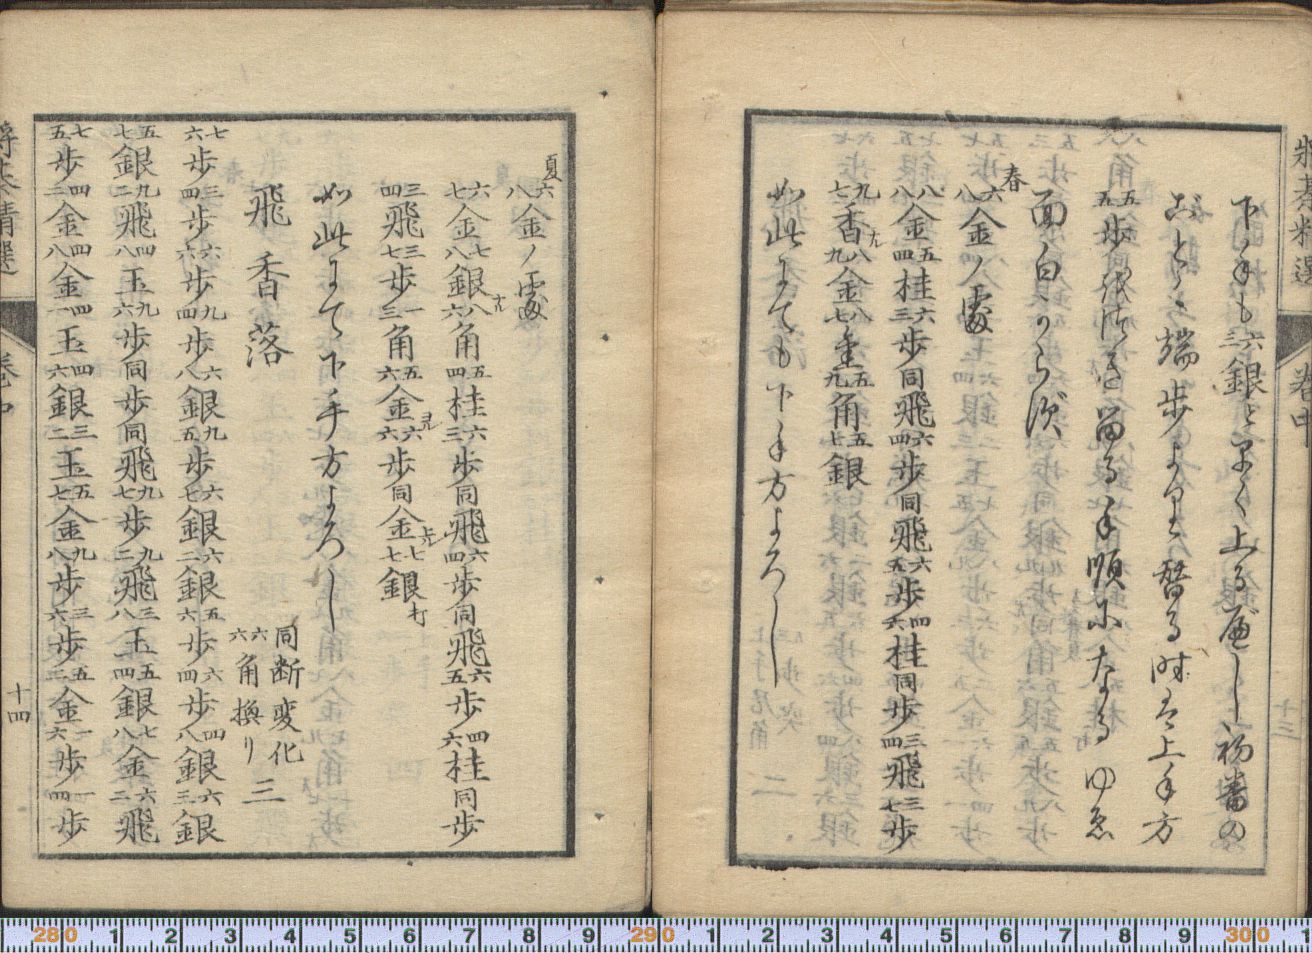 将棊精選　巻中　十三
下手も六三銀と早く上るべし初番の
ごとく端歩より替る時は上手方
五五歩　留る手順になるゆゑ
面白からず
春六八金ノ處
八八金五四桂六三歩同飛六四歩同飛六五歩四六桂同歩三四飛三七歩
九七香ナル八九金八七金五九角五七銀
如此にても下手方よろし
夏六八金ノ處
六七金七八銀ナル八六角五四桂六三歩同飛六四歩同飛六五歩四六桂同歩
三四飛三七歩一三角五六金ヨル六六歩同金上ル七七銀打
如此にて下手方よろし
飛香落　同断変化
六六角換り　三
七六歩三四歩六六歩九四歩六八銀九五歩六七銀六二銀五六歩六四歩四八銀六三銀
五七銀九二飛四八玉九六歩同歩同飛九七歩九二飛三八玉五四銀七八金六二飛
七五歩四二金四八金四一玉四六銀三二玉五七金九八歩三六歩五二金一六歩一四歩
将棊精選　巻中　十四
280 1 2 3 4 5 6 7 8 9 290 1 2 3 4 5 6 7 8 9 300 1